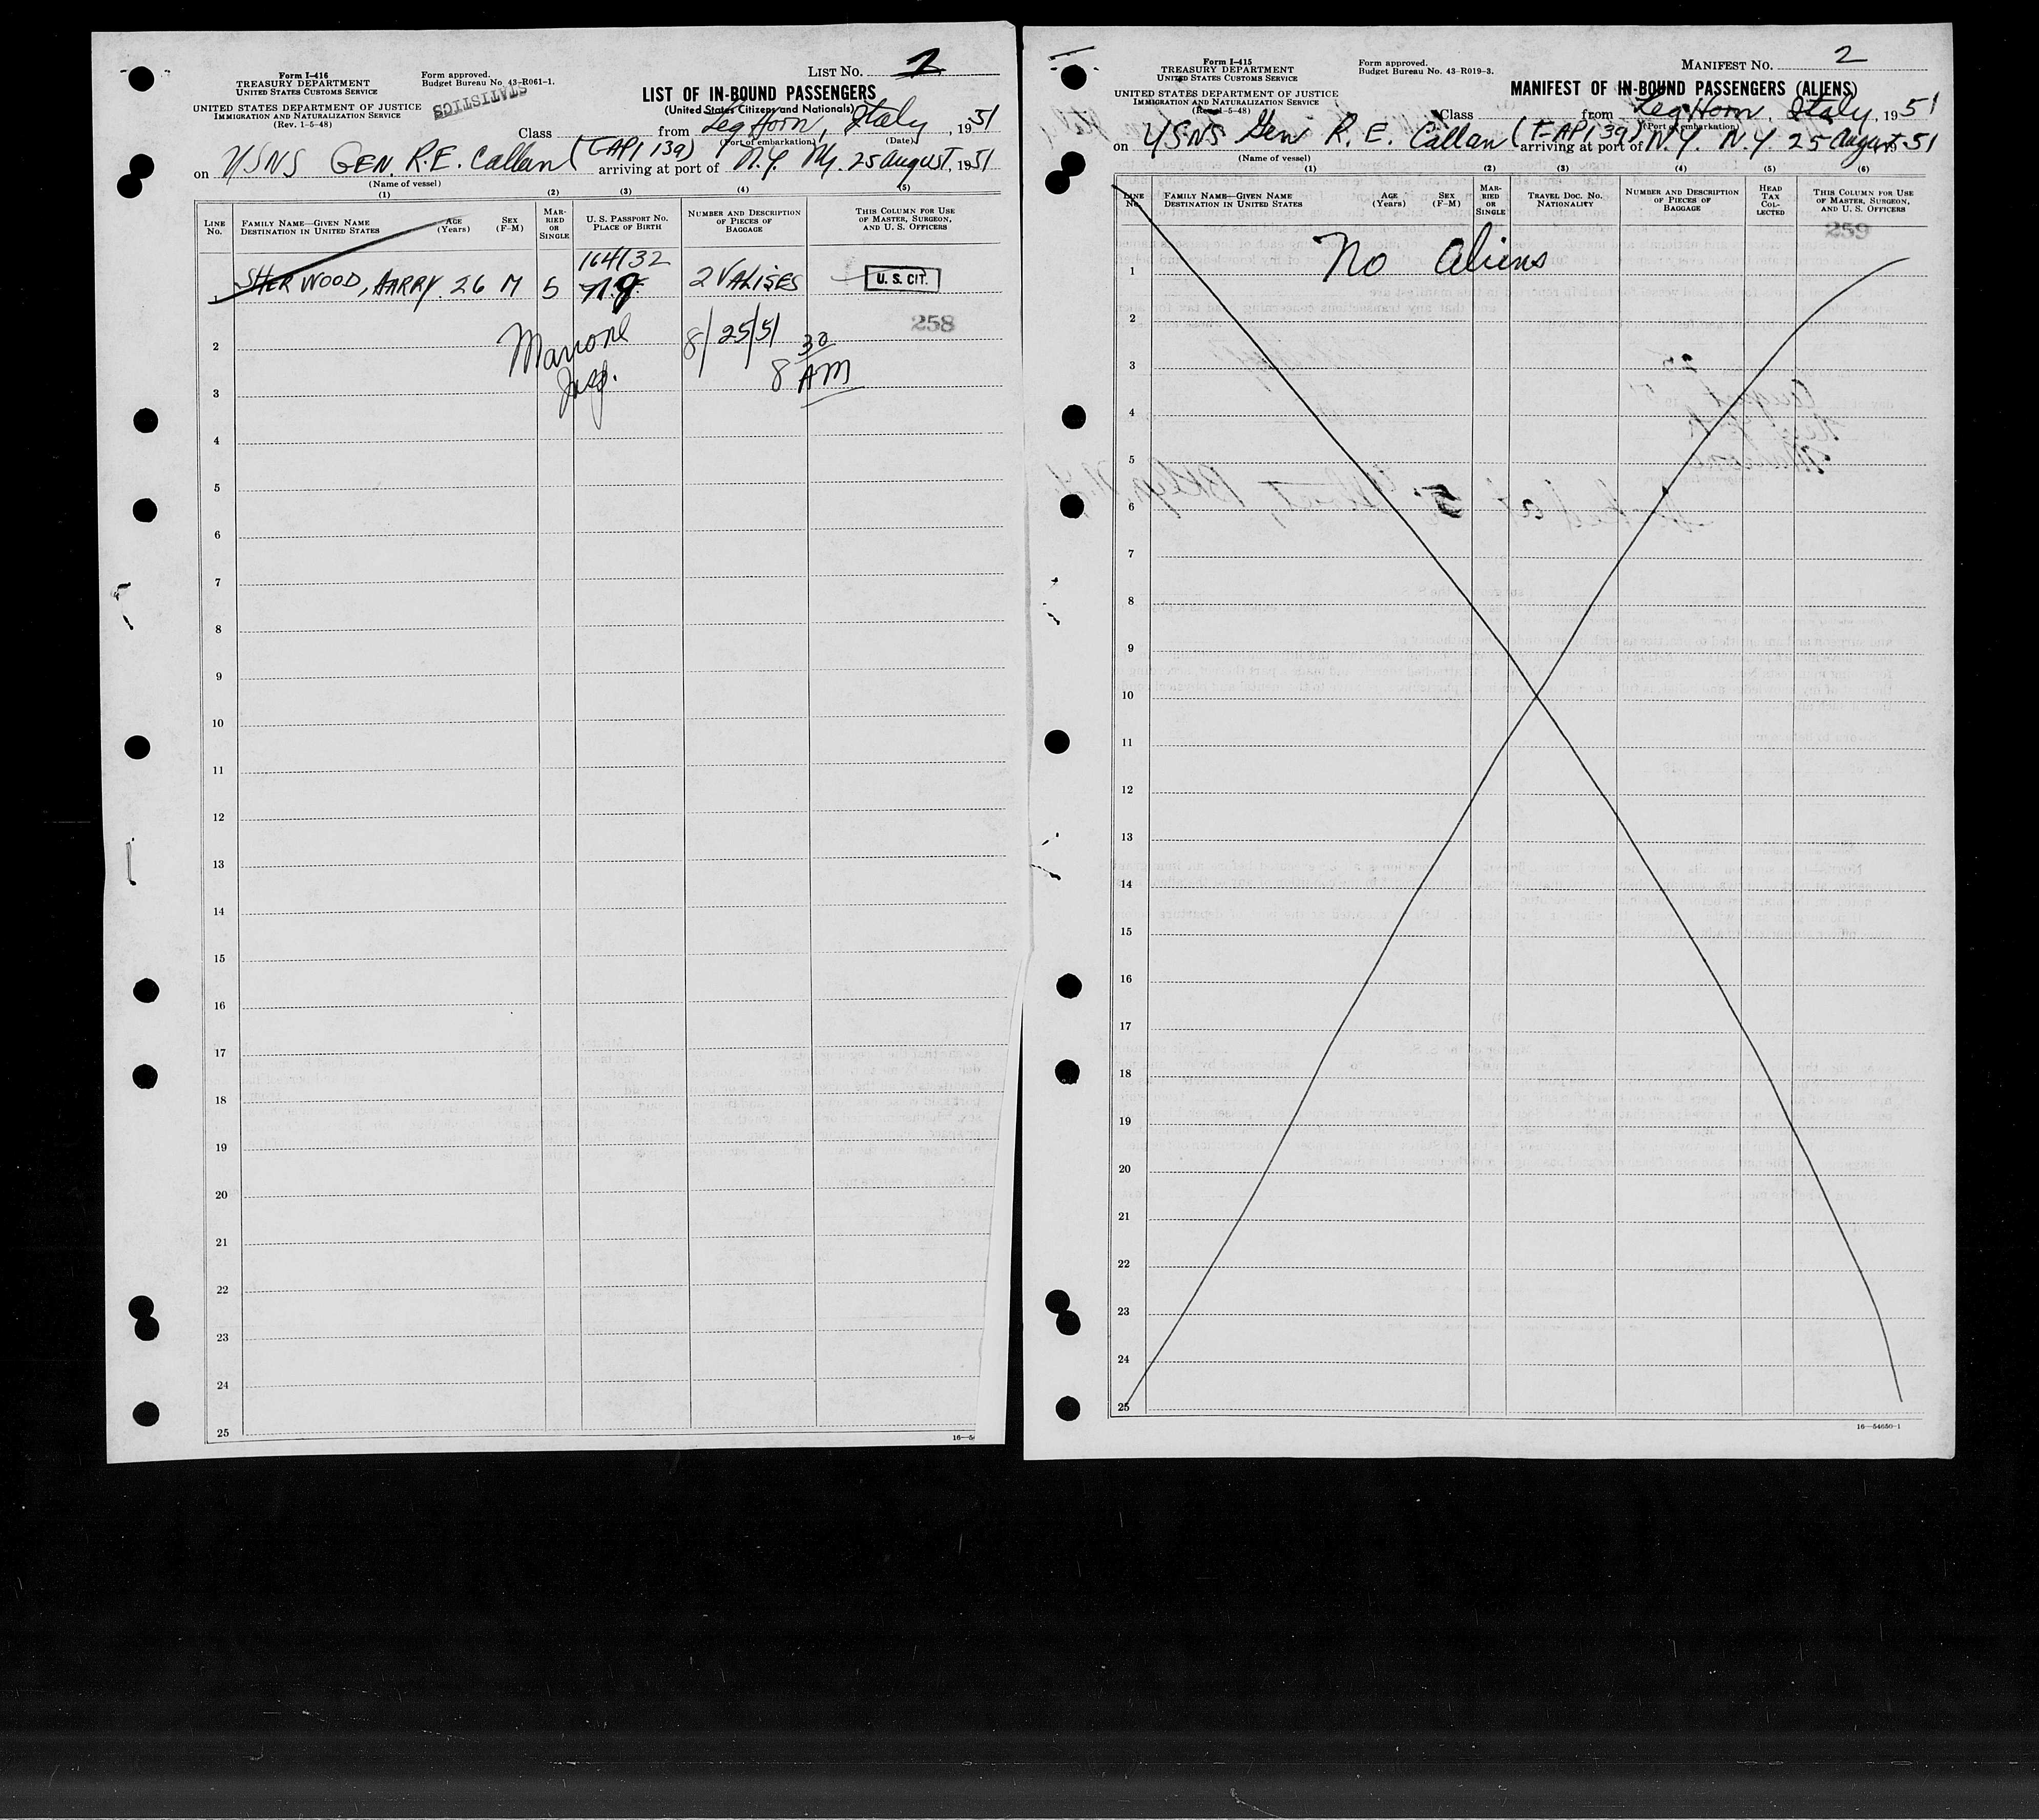 Form I-416
TREASURY DEPARTMENT
UNITED STATES CUSTOMS SERVICE
UNITED STATES DEPARTMENT OF JUSTICE
IMMIGRATION AND NATURALIZATION SERVICE
(Rev. 1-5-48)
Form approved.
Budget Bureau No. 43-R061-1.
STATISTICS
LIST NO. 2
LIST OF IN-BOUND PASSENGERS
(United States Citizens and Nationals)
Class from Leg Horn, Italy, 1951
(Port of embarkation) (Date)
on USNS GEN. R.E. Callan (T-AP 139) arriving at port of N.Y. N.Y. 25 August, 1951
(Name of vessel)
(1) (2) (3) (4) (5)
LINE NO.
FAMILY NAME—GIVEN NAME
DESTINATION IN UNITED STATES
AGE (Years)
SEX (F-M)
MARRIED OR SINGLE
U. S. PASSPORT NO.
PLACE OF BIRTH
NUMBER AND DESCRIPTION OF PIECES OF BAGGAGE
THIS COLUMN FOR USE OF MASTER, SURGEON, AND U. S. OFFICERS
164132
SHERWOOD, HARRY 26 M S 2 VALISES U. S. CIT.
258
8/25/51
8 30 AM
2
3
4
5
6
7
8
9
10
11
12
13
14
15
16
17
18
19
20
21
22
23
24
25
Form I-415
TREASURY DEPARTMENT
UNITED STATES CUSTOMS SERVICE
UNITED STATES DEPARTMENT OF JUSTICE
IMMIGRATION AND NATURALIZATION SERVICE
(Rev. 1-5-48)
Form approved.
Budget Bureau No. 43-R019-3.
MANIFEST NO. 2
MANIFEST OF IN-BOUND PASSENGERS (ALIENS)
Class from Leg Horn, Italy, 1951
(Port of embarkation)
on USNS Gen R. E. Callan (T-AP 139) arriving at port of N.Y. N.Y. 25 August 51
(Name of vessel)
(1) (2) (3) (4) (5) (6)
LINE NO.
FAMILY NAME—GIVEN NAME
DESTINATION IN UNITED STATES
AGE (Years)
SEX (F-M)
MARRIED OR SINGLE
TRAVEL DOC. NO.
NATIONALITY
NUMBER AND DESCRIPTION OF PIECES OF BAGGAGE
HEAD TAX COLLECTED
THIS COLUMN FOR USE OF MASTER, SURGEON, AND U. S. OFFICERS
259
1 No Aliens
2
3
4
5
6
7
8
9
10
11
12
13
14
15
16
17
18
19
20
21
22
23
24
25
16—54650-1